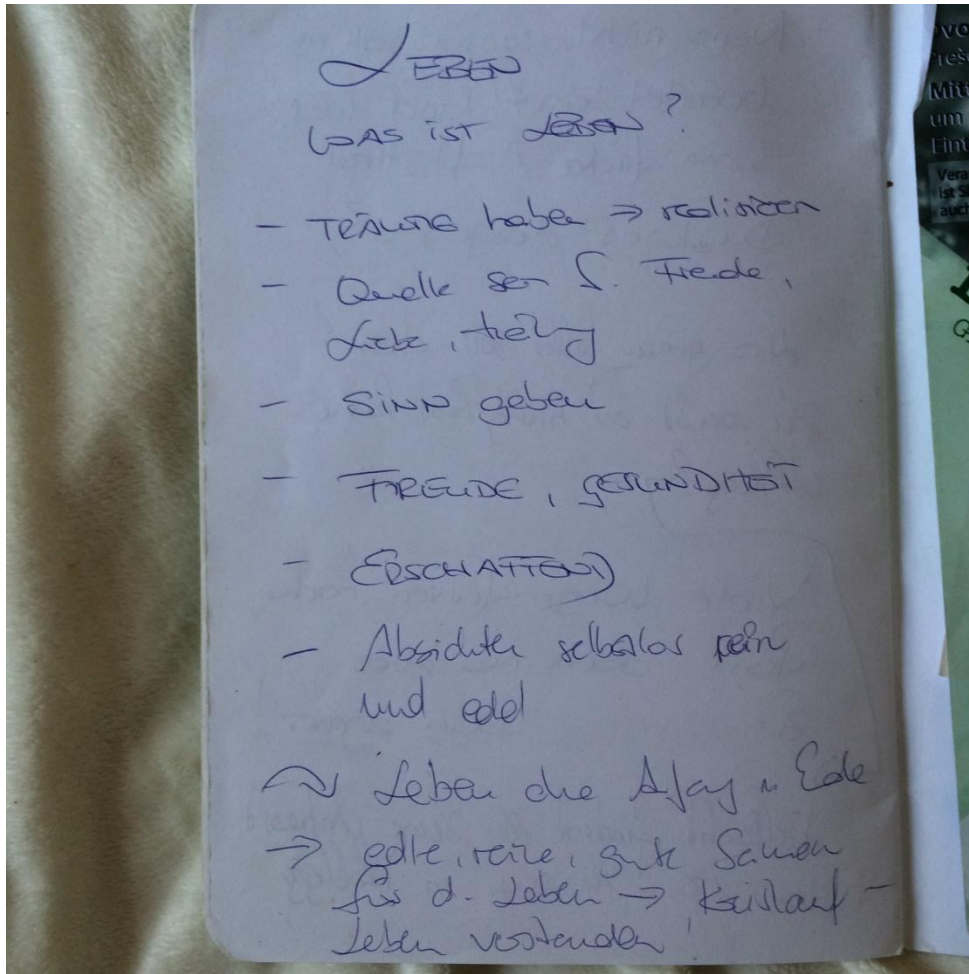 LEBEN
WAS iST LEBEN?
- TRÄUME haben ⇒ realisieren
- Quelle sein f. Freude,
Liebe,
- SiNN geben
- FREUDE, GESUNDHEiT
- ERSCHAFFEND
- Absichten selbstlos rein
und edel
~ Leben ohne Anfang u. Ende
→ edle, reine, gute Samen
für d. Leben → Kreislauf -
Leben verstanden!
vo
Preš
Mitt
um
Eint
Vera
ist S
auch